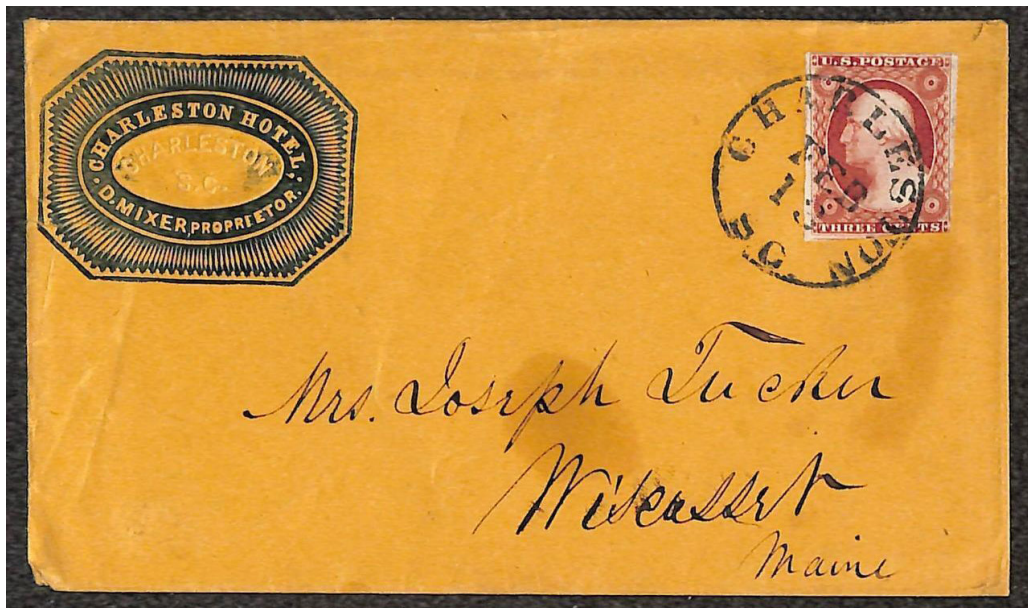 CHARLESTON HOTEL,
CHARLESTON
S.C.
D. MIXER PROPRIETOR.
U.S. POSTAGE
THREE CENTS
CHARLESTON S.C.
Mrs. Joseph Tucker
Wiscasset
Maine